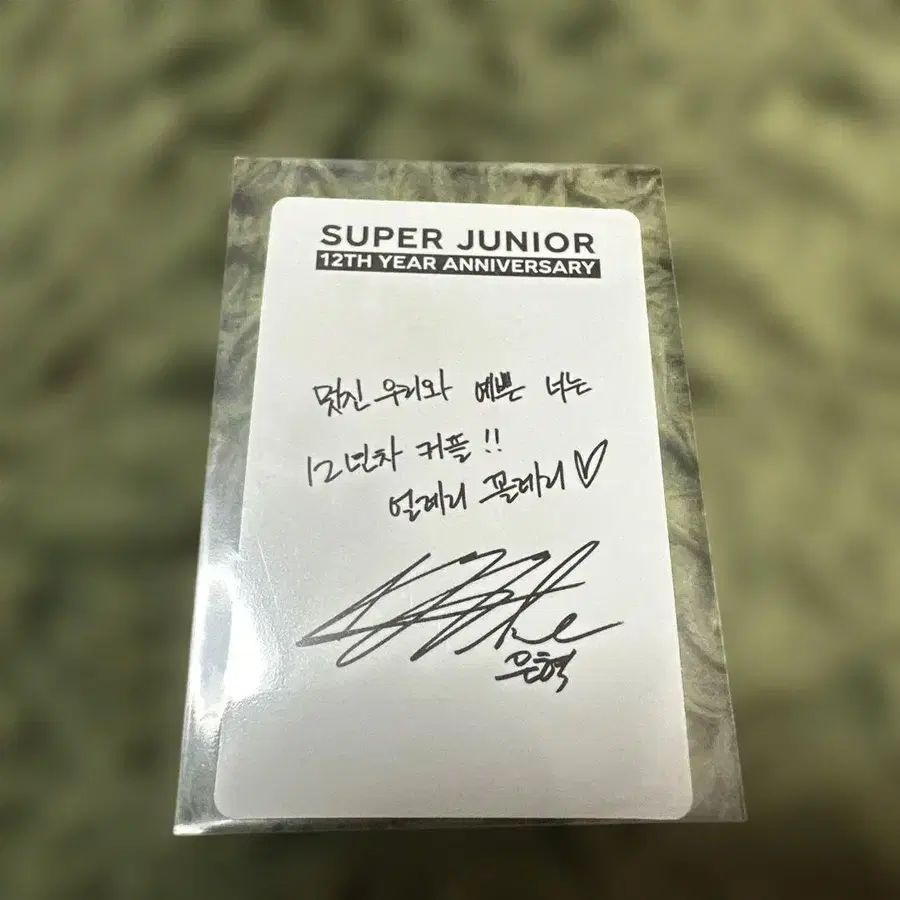 SUPER JUNIOR
12TH YEAR ANNIVERSARY
멋진 우리와 예쁜 너는
12년차 커플!!
얼레리 꼴레리♡
은혁